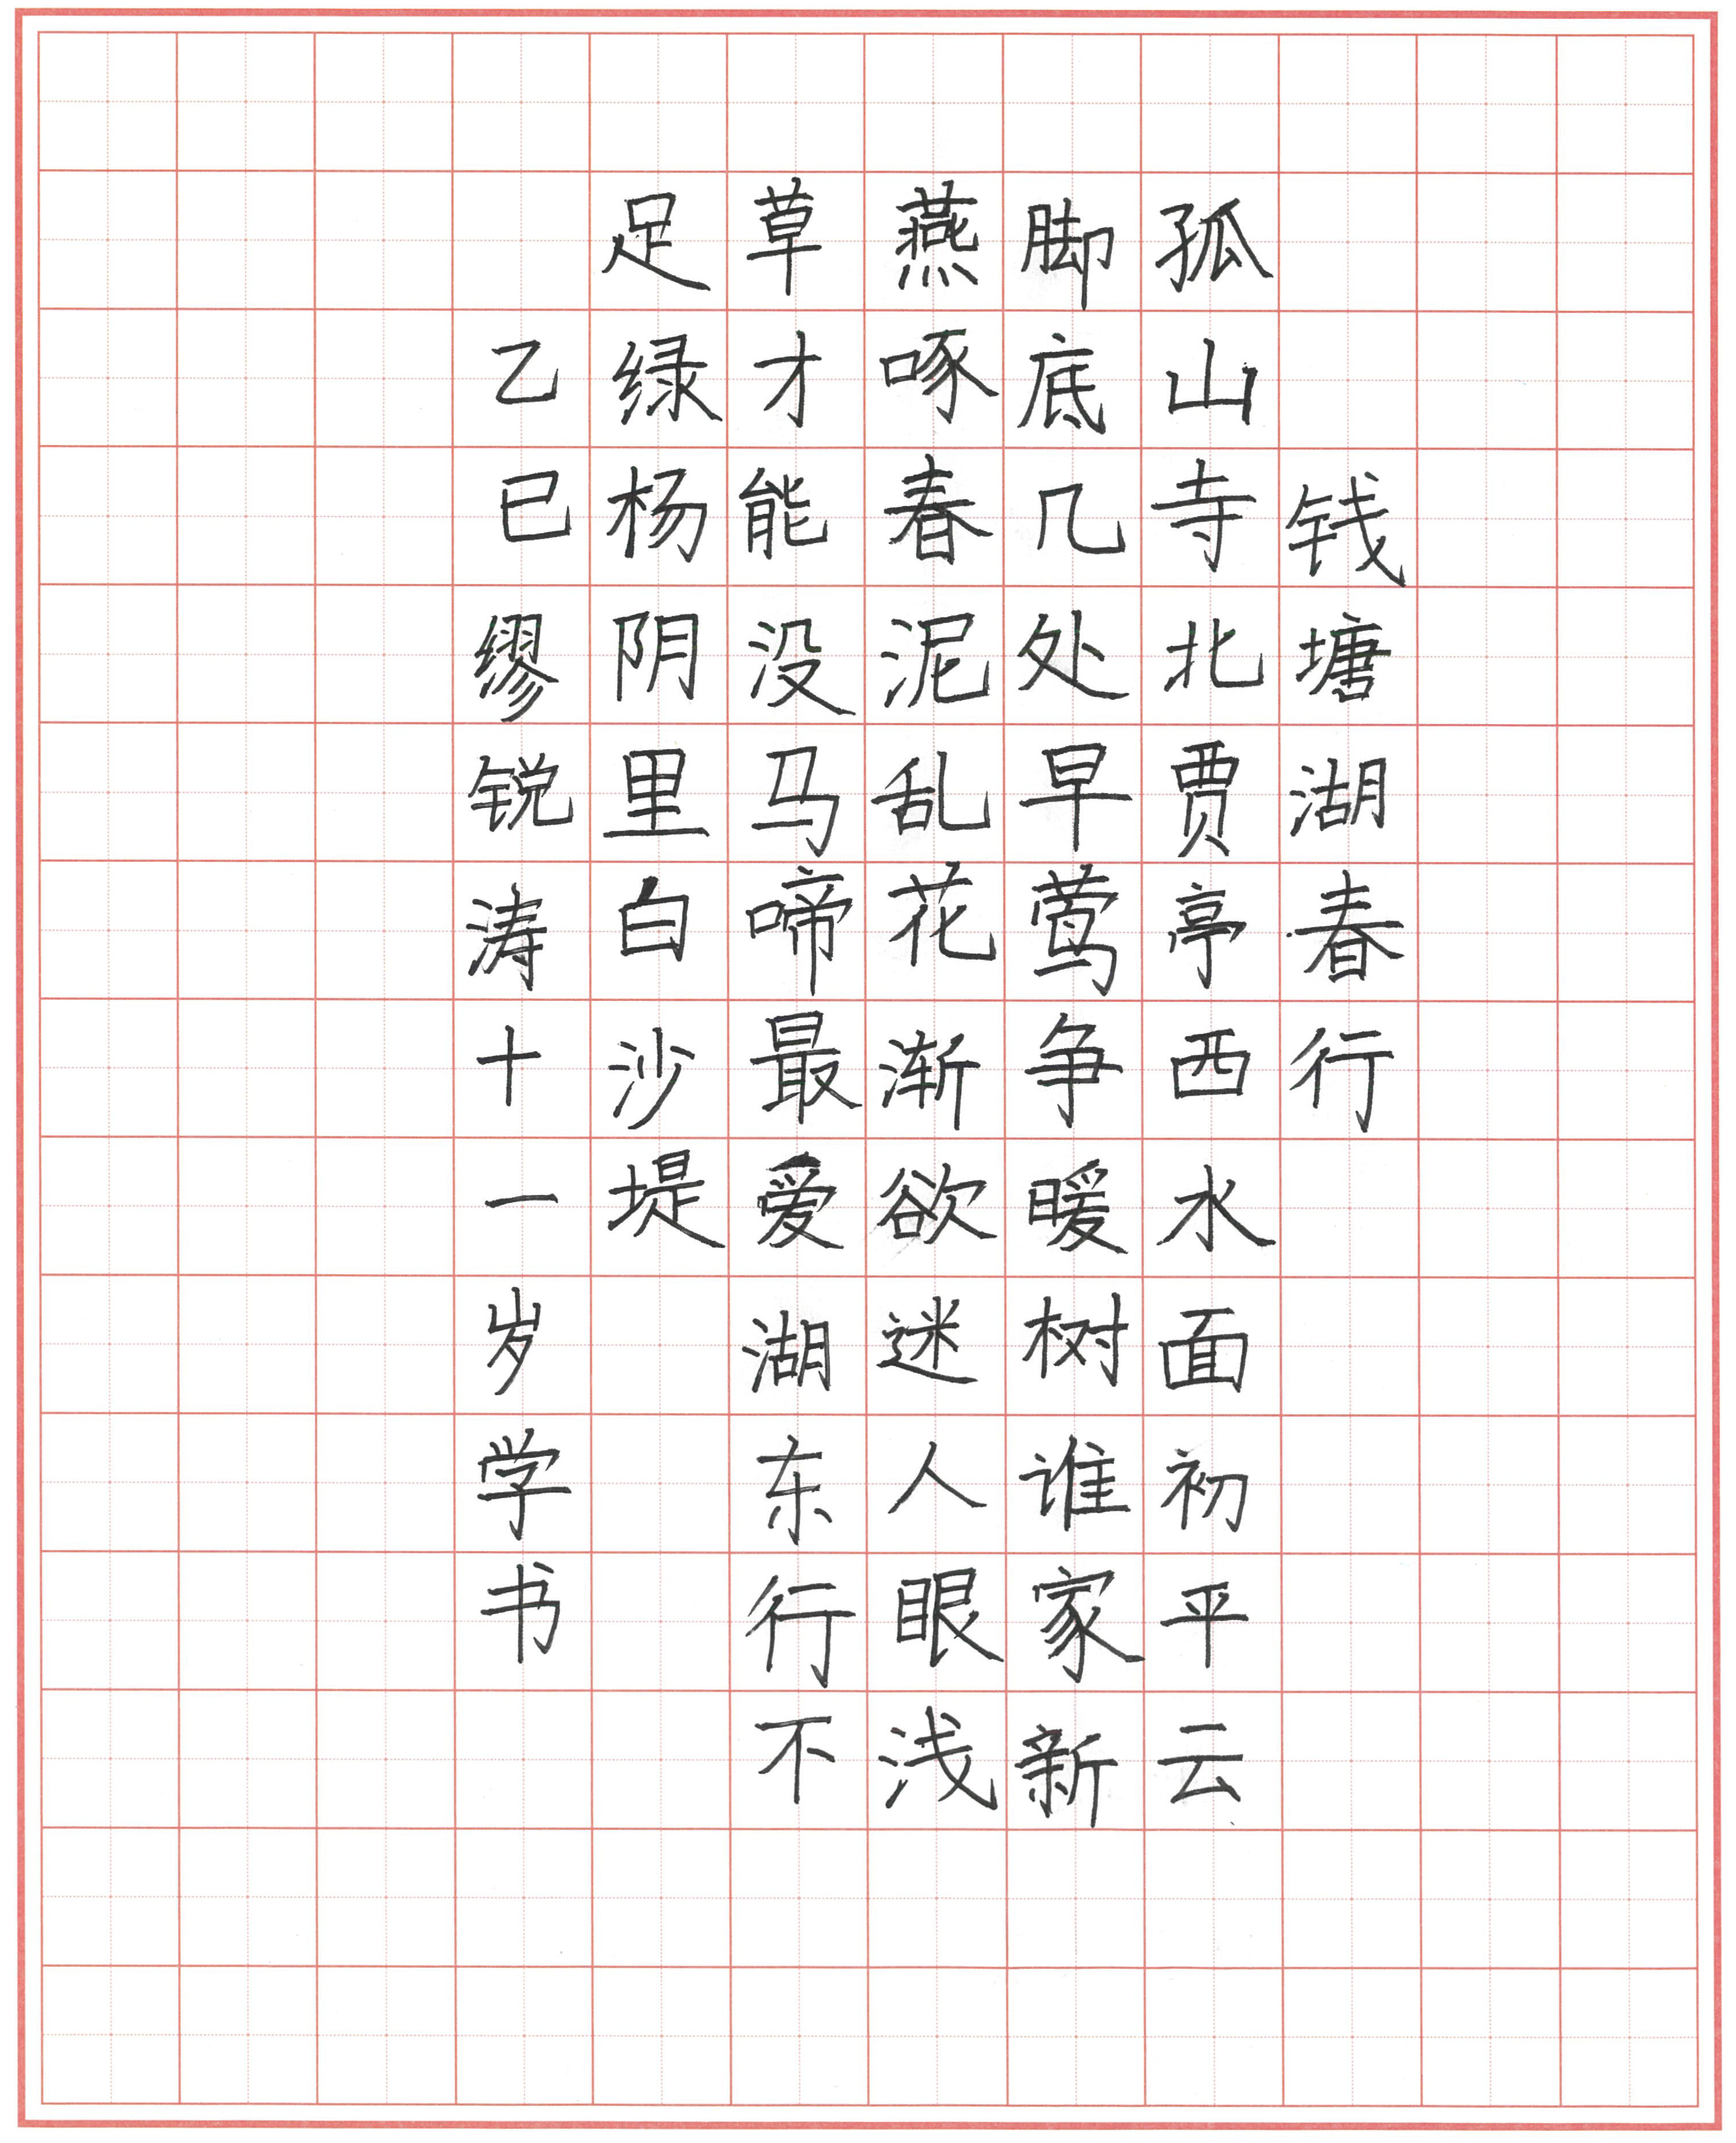 钱塘湖春行
孤山寺北贾亭西水面初平云
脚底几处早莺争暖树谁家新
燕啄春泥乱花渐欲迷人眼浅
草才能没马啼最爱湖东行不
足绿杨阴里白沙堤
乙巳缪锐涛十一岁学书